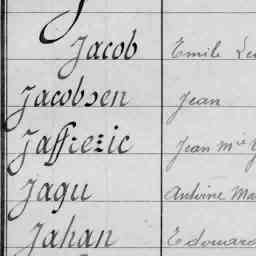 Jacob Emile
Jacobsen Jean
Jaffrezic Jean Mie
Jagu Antoine
Jahan Edouard